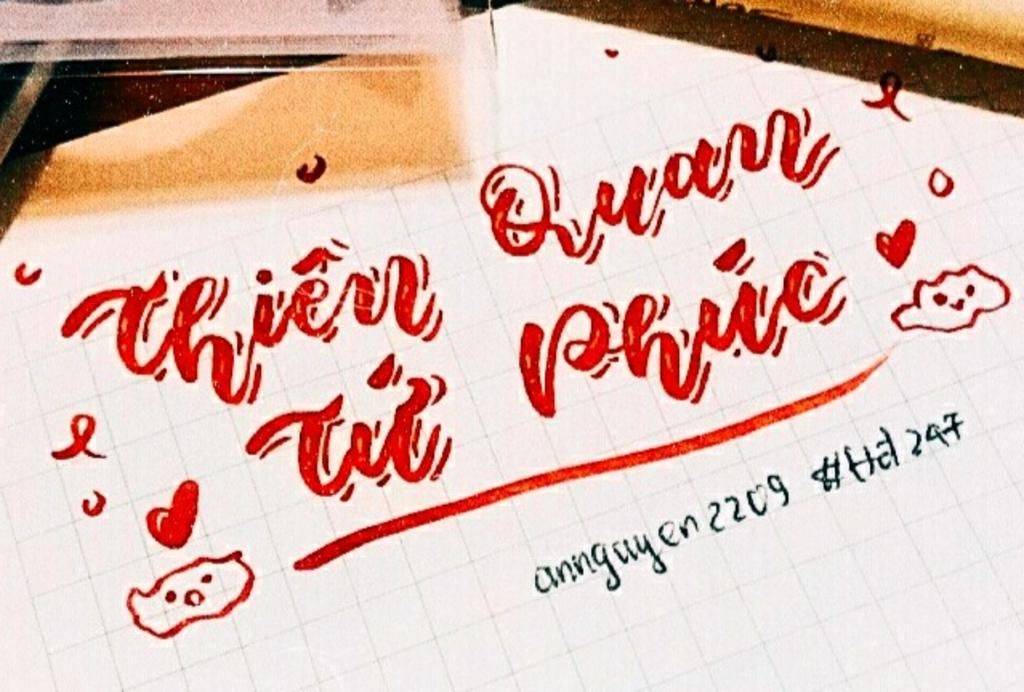 Thiên Quan
Tứ Phúc
annguyen2209 #Hd247